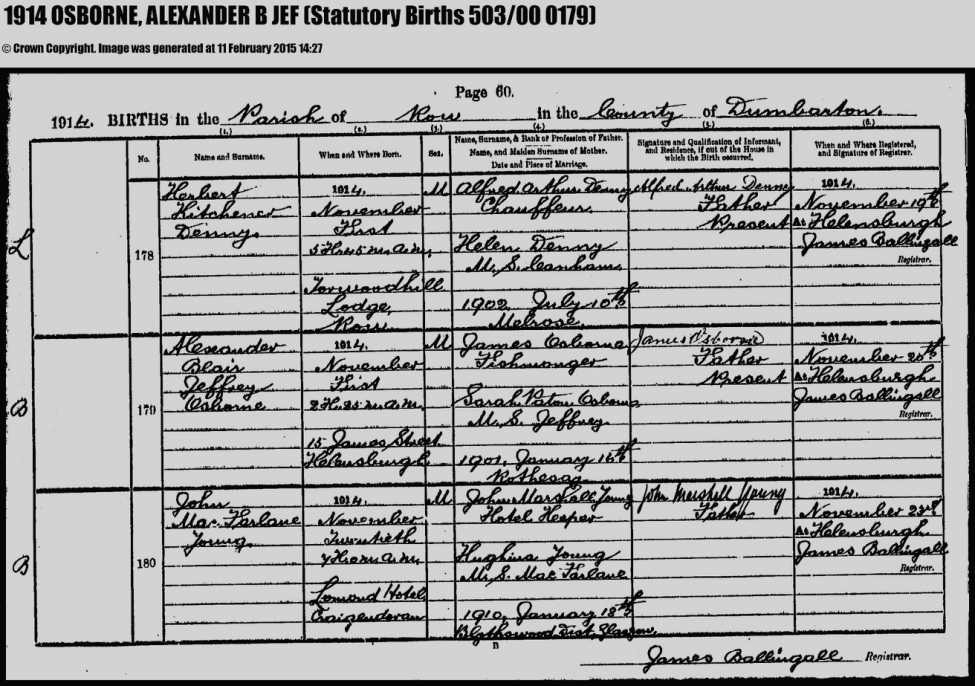 1914 OSBORNE, ALEXANDER B JEF (Statutory Births 503/00 0179)
© Crown Copyright. Image was generated at 11 February 2015 14:27
Page 60.
1914. BIRTHS in the Parish of Row in the County of Dumbarton.
(1.) (2.) (3.) (4.) (5.) (6.)
No.
Name and Surname.
When and Where Born.
Sex.
Name, Surname, & Rank or Profession of Father.
Name, and Maiden Surname of Mother.
Date and Place of Marriage.
Signature and Qualification of Informant,
and Residence, if out of the House in
which the Birth occurred.
When and Where Registered,
and Signature of Registrar.
L
178
Herbert
Kitchener
Denny.
1914.
November
First
5 Hrs 45 m. A.M.
Torwoodhill
Lodge,
Row
M
Alfred Arthur Denny
Chauffeur.
Helen Denny
M.S. Leanham.
1902, July 10th
Melrose.
Alfred Arthur Denny
Father
Present
1914.
November 19th
At Helensburgh
James Ballingall
Registrar.
B
179
Alexander
Blair
Jeffrey
Osborne
1914.
November
First
2 Hrs 25 m. A.M.
15 James Street
Helensburgh
M
James Osborne
Fishmonger
Sarah Paton Osborne
M.S. Jeffrey.
1901, January 16th
Rothesay.
James Osborne
Father
Present
1914.
November 20th
At Helensburgh
James Ballingall
Registrar.
B
180
John
MacFarlane
Young.
1914.
November
Twentieth
7 H. 0 m. A.M.
Lomond Hotel,
Craigendoran
M
John Marshall Young
Hotel Keeper
Hughina Young
M.S. MacFarlane
1910, January 18th
Blythswood Dist. Glasgow.
John Marshall Young
Father
1914.
November 23rd
At Helensburgh
James Ballingall
Registrar.
B
James Ballingall Registrar.